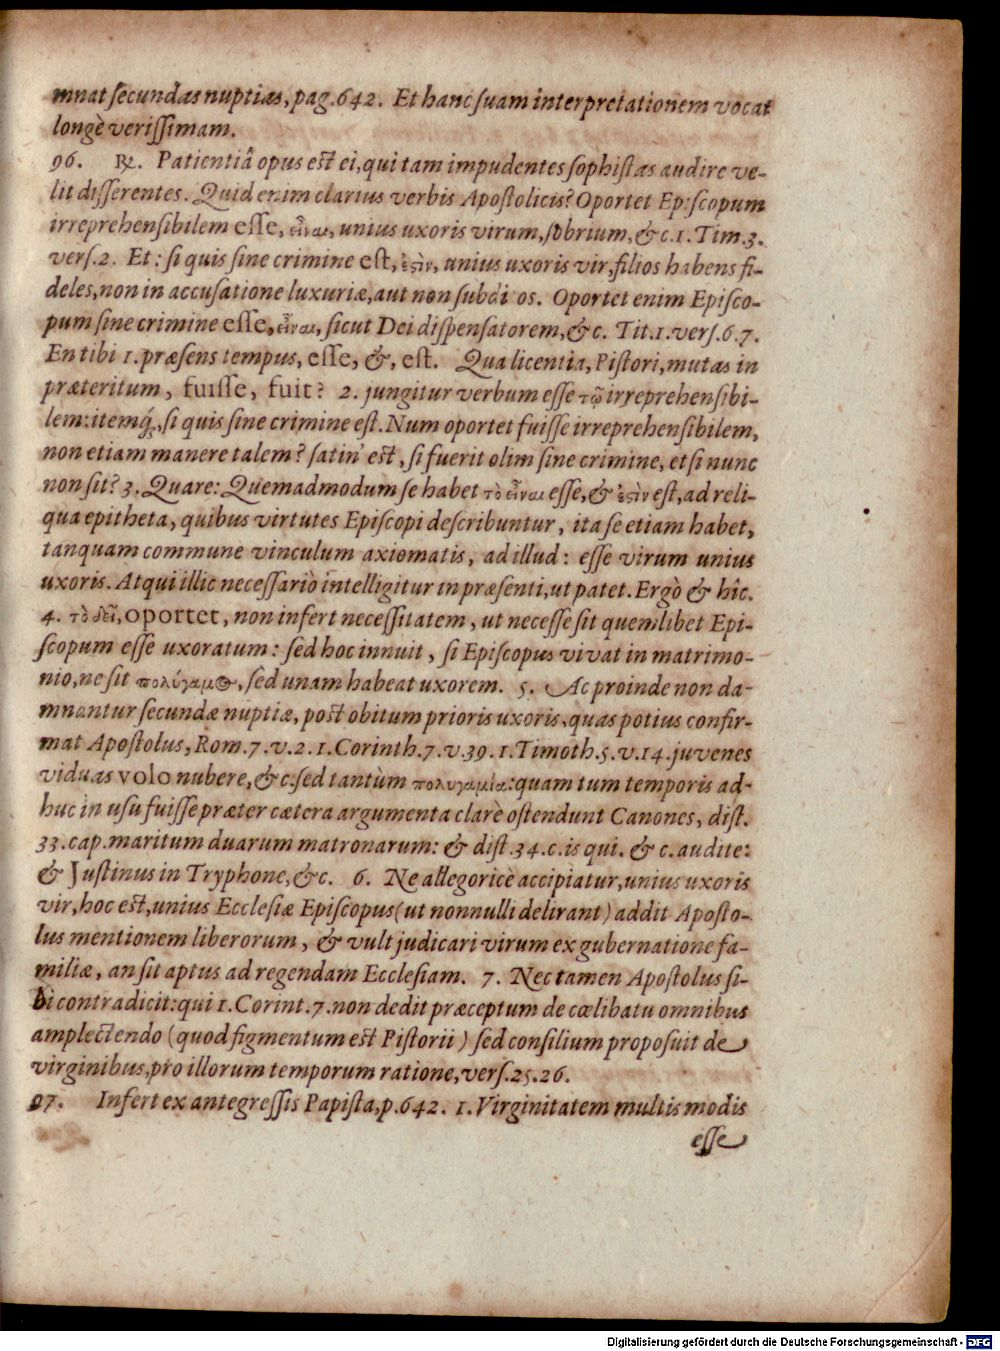 mnat secundas nuptias, pag. 642. Et hanc suam interpretationem vocat
longè verissimam.
96. ℞. Patientiâ opus est ei, qui tam impudentes sophistas audire ve-
lit disserentes. Quid enim clarius verbis Apostolicis? Oportet Episcopum
irreprehensibilem esse, εἶναι, unius uxoris virum, sobrium, &c. 1. Tim. 3.
vers. 2. Et: si quis sine crimine est, ἐϛὶν, unius uxoris vir, filios habens fi-
deles, non in accusatione luxuriæ, aut non subdi os. Oportet enim Episco-
pum sine crimine esse, εἶναι, sicut Dei dispensatorem, &c. Tit. 1. vers. 6. 7.
En tibi 1. præsens tempus, esse, &, est. Qua licentia, Pistori, mutas in
præteritum, fuisse, fuit? 2. jungitur verbum esse τῷ irreprehensibi-
lem: itemq́;, si quis sine crimine est. Num oportet fuisse irreprehensibilem,
non etiam manere talem? satin' est, si fuerit olim sine crimine, etsi nunc
non sit? 3. Quare: Quemadmodum se habet τὸ εἶναι esse, & ἐϛὶν est, ad reli-
qua epitheta, quibus virtutes Episcopi describuntur, ita se etiam habet,
tanquam commune vinculum axiomatis, ad illud: esse virum unius
uxoris. Atqui illic necessariò intelligitur in præsenti, ut patet. Ergò & hîc.
4. τὸ δεῖ, oportet, non infert necessitatem, ut necesse sit quemlibet Epi-
scopum esse uxoratum: sed hoc innuit, si Episcopus vivat in matrimo-
nio, ne sit πολύγαμ⊙, sed unam habeat uxorem. 5. Ac proinde non da-
mnantur secundæ nuptiæ, post obitum prioris uxoris, quas potius confir-
mat Apostolus, Rom. 7. v. 2. 1. Corinth. 7. v. 39. 1. Timoth. 5. v. 14. juvenes
viduas volo nubere, &c. sed tantùm πολυγαμία: quam tum temporis ad-
huc in usu fuisse præter cætera argumenta clarè ostendunt Canones, dist.
33. cap. maritum duarum matronarum: & dist. 34. c. is qui. & c. audite:
& Justinus in Tryphone, &c. 6. Ne allegoricè accipiatur, unius uxoris
vir, hoc est, unius Ecclesiæ Episcopus (ut nonnulli delirant) addit Aposto-
lus mentionem liberorum, & vult judicari virum ex gubernatione fa-
miliæ, an sit aptus ad regendam Ecclesiam. 7. Nec tamen Apostolus si-
bi contradicit: qui 1. Corint. 7. non dedit præceptum de cœlibatu omnibus
amplectendo (quod figmentum est Pistorii) sed consilium proposuit de
virginibus, pro illorum temporum ratione, vers. 25. 26.
97. Infert ex antegressis Papista, p. 642. 1. Virginitatem multis modis
esse
Digitalisierung gefördert durch die Deutsche Forschungsgemeinschaft - DFG